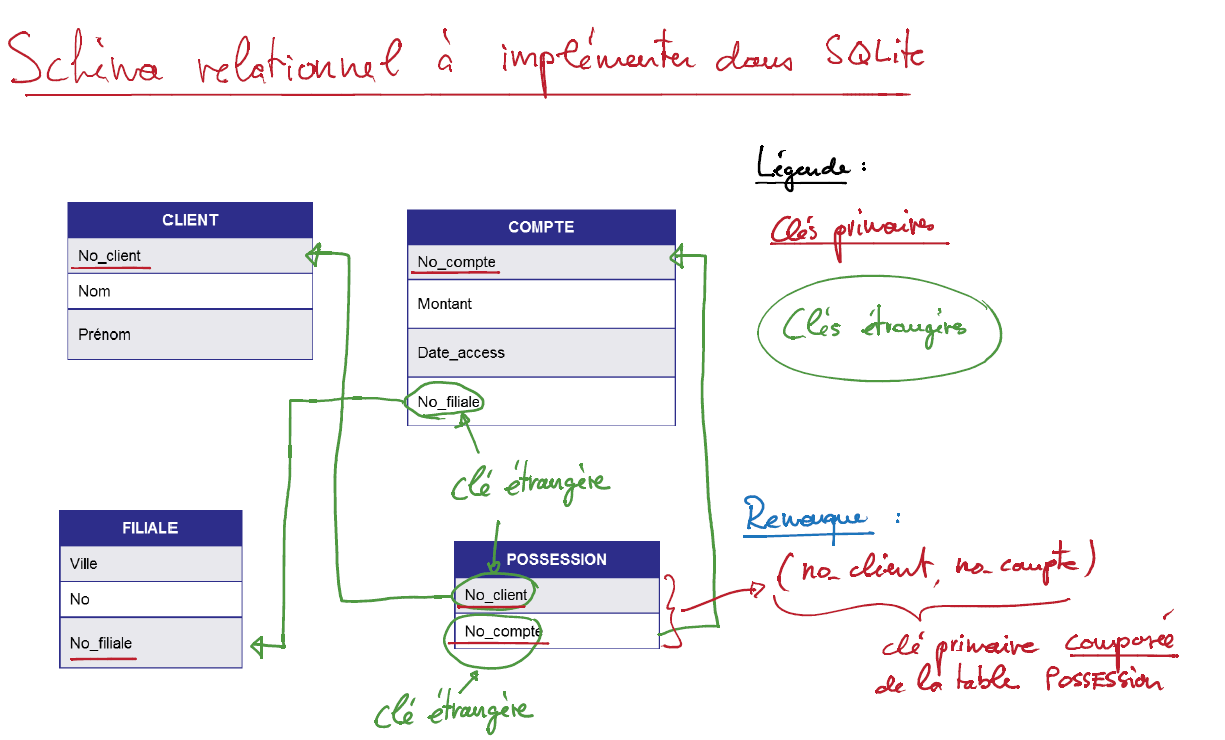 Schéma relationnel à implémenter dans SQLite
Légende :
Clés primaires
Clés étrangères
CLIENT
No_client
Nom
Prénom
COMPTE
No_compte
Montant
Date_access
No_filiale
clé étrangère
FILIALE
Ville
No
No_filiale
POSSESSION
No_client
No_compte
clé étrangère
Remarque :
(no_client, no_compte)
clé primaire composée
de la table POSSESSION